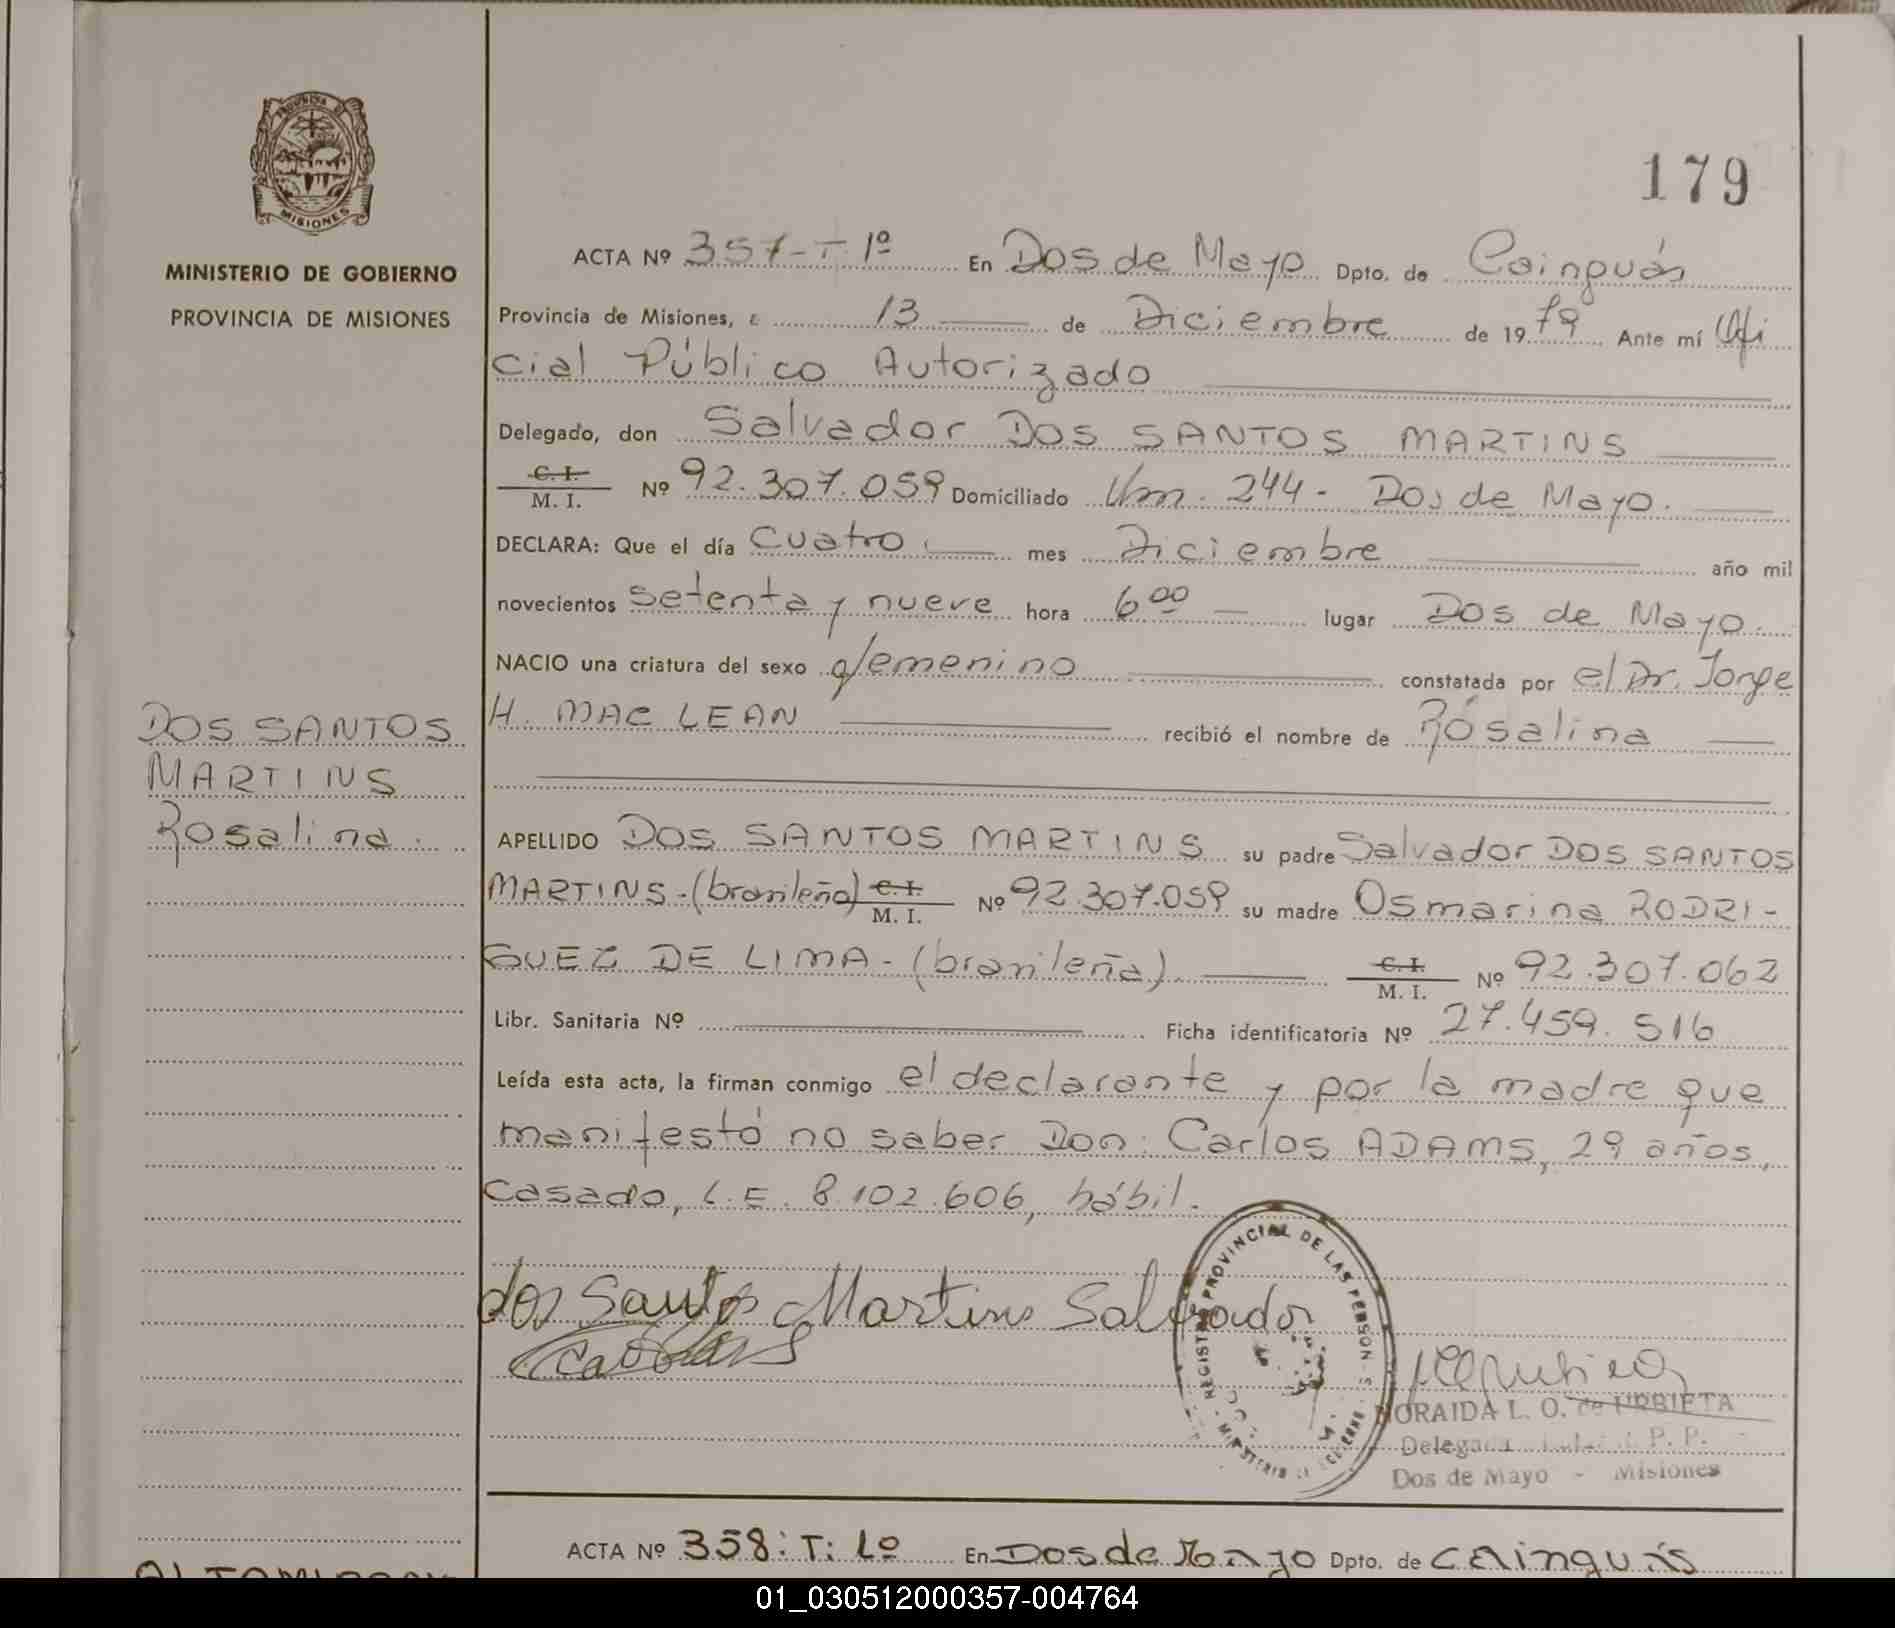 PROVINCIA DE
MISIONES
MINISTERIO DE GOBIERNO
PROVINCIA DE MISIONES
179
ACTA Nº 357-T 1º En Dos de Mayo Dpto. de Cainguás
Provincia de Misiones, a 13 de Diciembre de 1979 Ante mí Ofi
cial Público Autorizado
Delegado, don Salvador DOS SANTOS MARTINS
C. I. M. I. Nº 92.307.059 Domiciliado Km. 244 - Dos de Mayo.
DECLARA: Que el día Cuatro mes Diciembre año mil
novecientos setenta y nueve hora 6 00 lugar Dos de Mayo.
NACIO una criatura del sexo femenino constatada por el Dr. Jorge
H. MAC LEAN recibió el nombre de Rosalina
DOS SANTOS
MARTINS
Rosalina.
APELLIDO DOS SANTOS MARTINS su padre Salvador DOS SANTOS
MARTINS - (brasileño) C. I. M. I. Nº 92.307.059 su madre Osmarina RODRI-
GUEZ DE LIMA - (brasileña) C. I. M. I. Nº 92.307.062
Libr. Sanitaria Nº Ficha identificatoria Nº 27.459.516
Leída esta acta, la firman conmigo el declarante y por la madre que
manifestó no saber Don: Carlos ADAMS, 29 años,
casado, L.E. 8.102.606, hábil.
dos Santos Martins Salvador
REGISTRO PROVINCIAL DE LAS PERSONAS
NORAIDA L. O. de URBIETA
Delegada P. P.
Dos de Mayo - Misiones
ACTA Nº 358: T: 1º En Dos de Mayo Dpto. de Cainguás
01_030512000357-004764